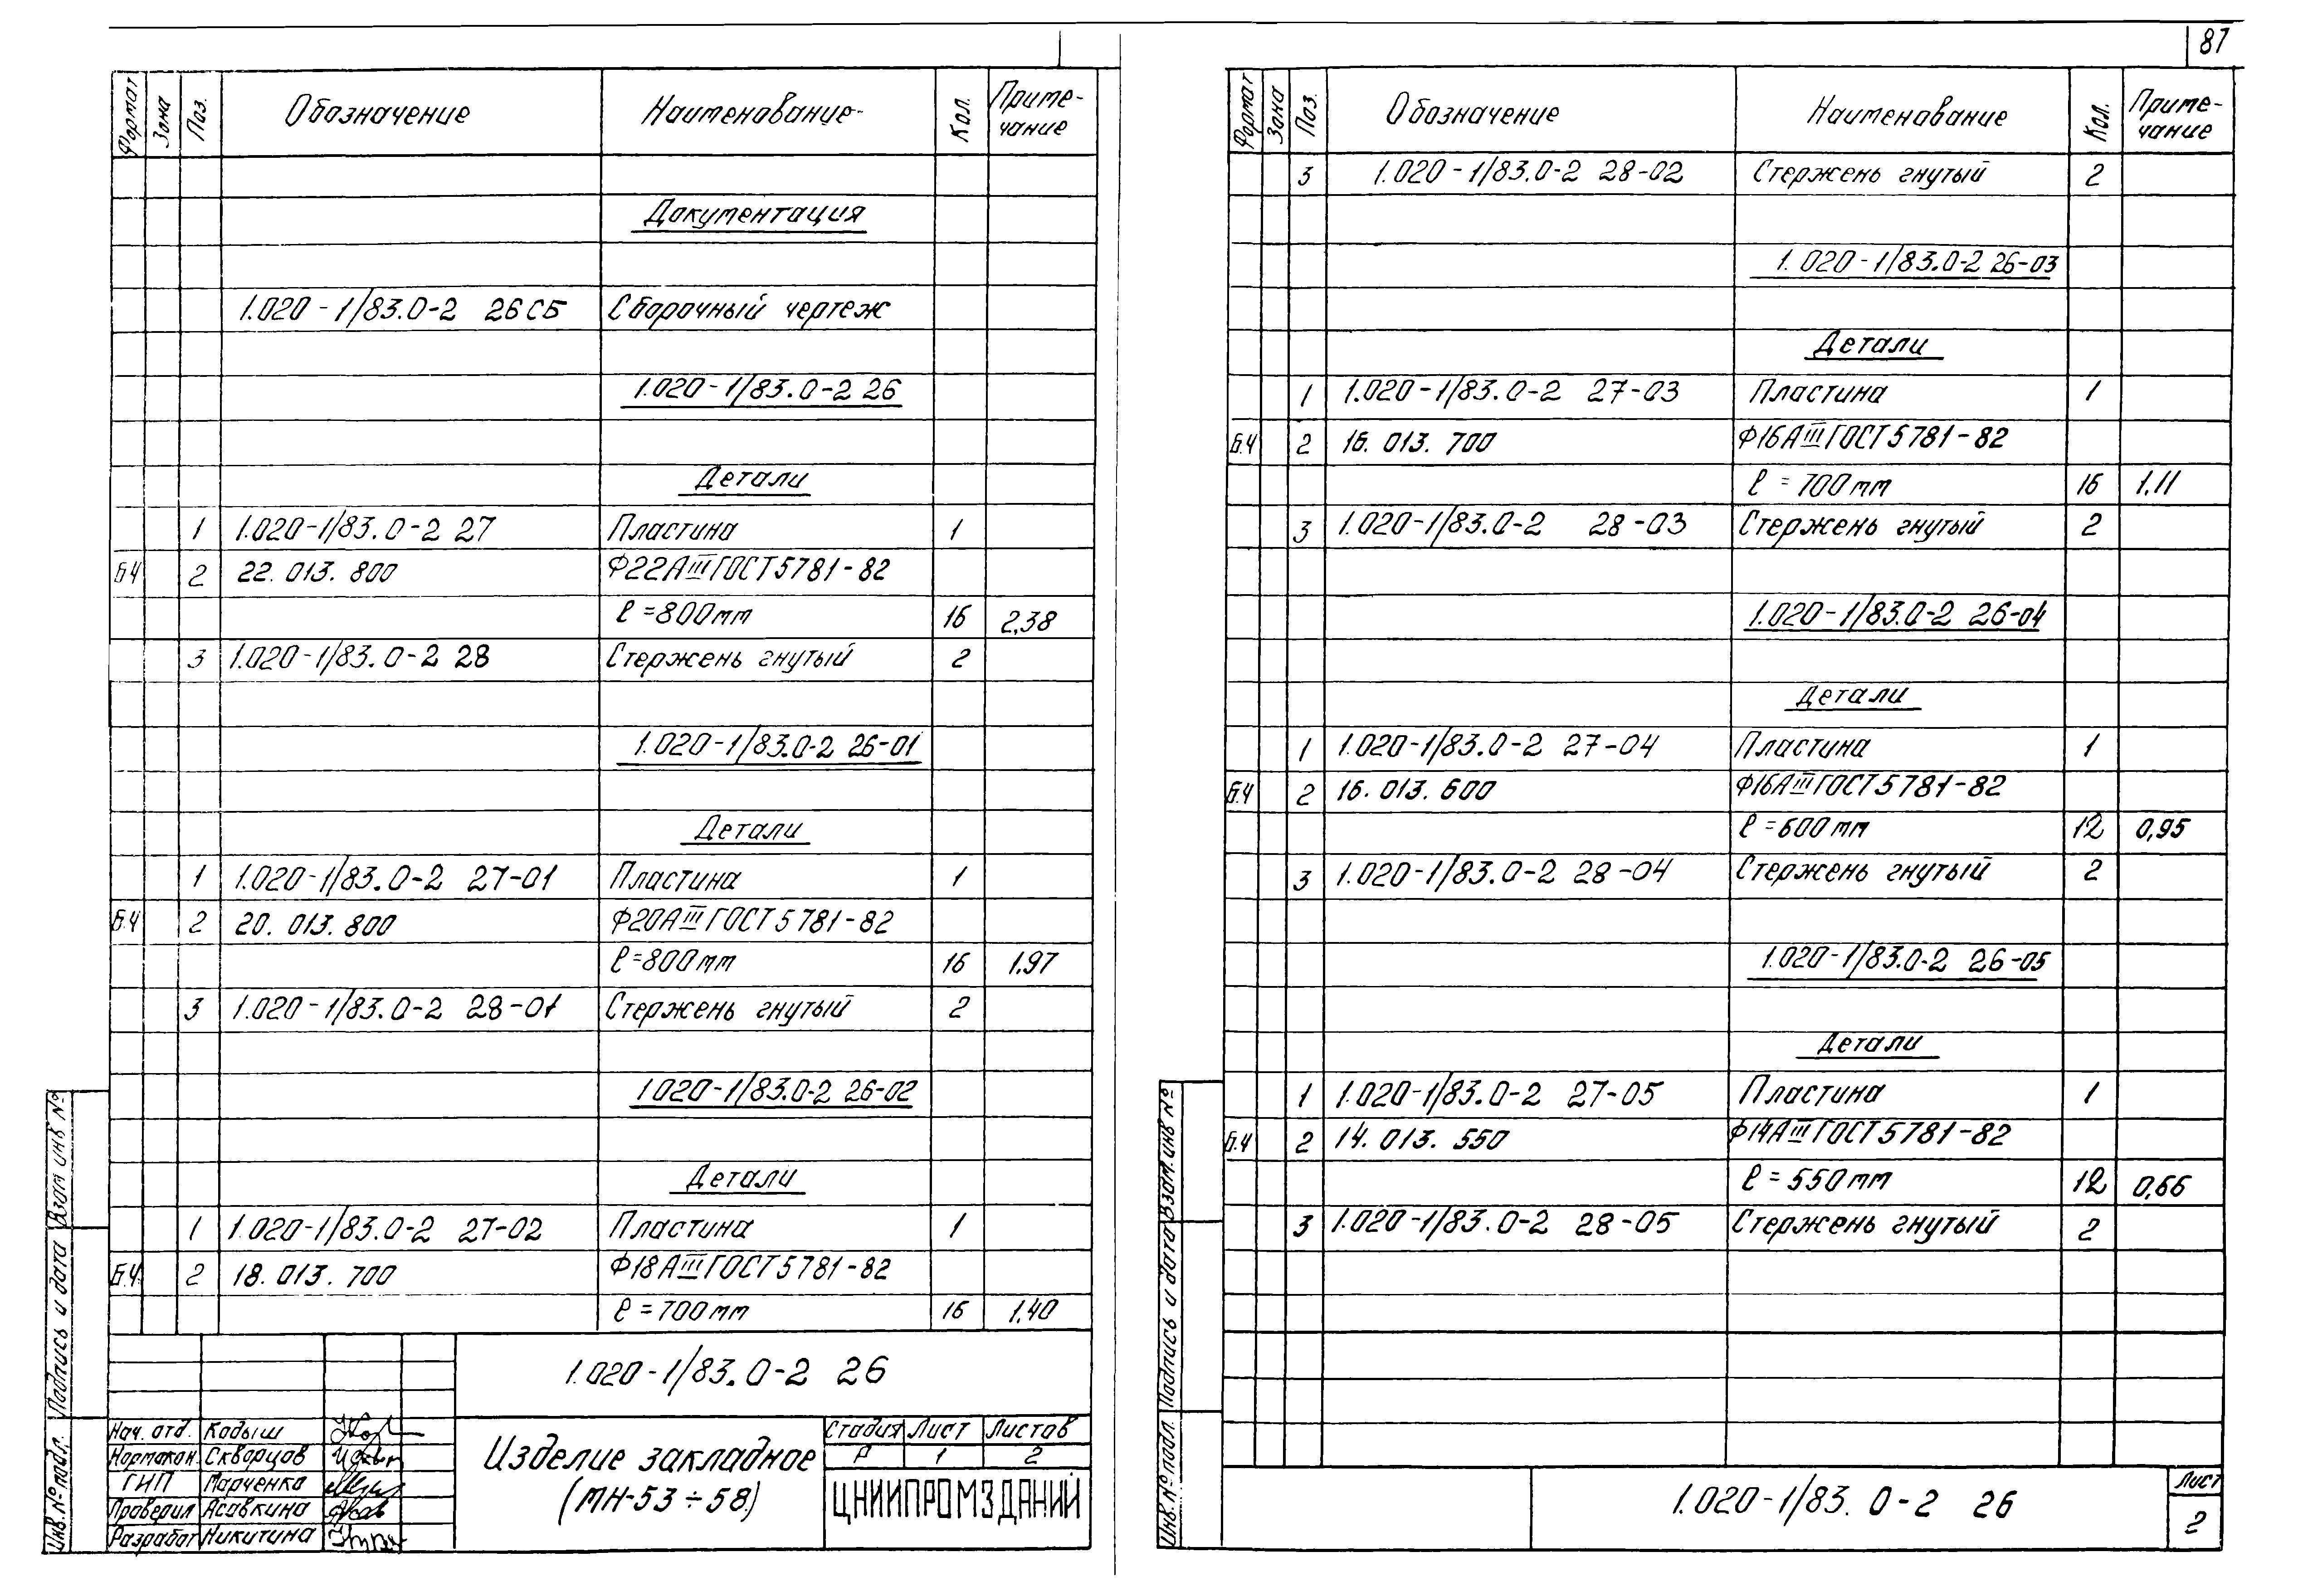 87
Формат Зона Поз. Обозначение Наименование Кол. Приме-
чание
Документация
1.020-1/83.0-2 26СБ Сборочный чертеж
1.020-1/83.0-2 26
Детали
1 1.020-1/83.0-2 27 Пластина 1
Б4 2 22. 013. 800 Ф22АIII ГОСТ 5781-82
ℓ=800мм 16 2,38
3 1.020-1/83.0-2 28 Стержень гнутый 2
1.020-1/83.0-2 26-01
Детали
1 1.020-1/83.0-2 27-01 Пластина 1
Б.4 2 20. 013. 800 Ф20АIII ГОСТ 5781-82
ℓ=800мм 16 1,97
3 1.020-1/83.0-2 28-01 Стержень гнутый 2
1.020-1/83.0-2 26-02
Детали
1 1.020-1/83.0-2 27-02 Пластина 1
Б.4. 2 18. 013. 700 Ф18АIII ГОСТ 5781-82
ℓ=700мм 16 1,40
1.020-1/83.0-2 26
Нач. отд. Кодыш
Нормокон. Скворцов
ГИП Марченко
Проверил Асавкина
Разработ Никитина
Изделие закладное
(МН-53÷58)
Стадия Лист Листов
Р 1 2
ЦНИИПРОМЗДАНИЙ
Инв. № подл. Подпись и дата Взам инв №
Формат Зона Поз. Обозначение Наименование Кол. Приме-
чание
3 1.020-1/83.0-2 28-02 Стержень гнутый 2
1.020-1/83.0-2 26-03
Детали
1 1.020-1/83.0-2 27-03 Пластина 1
Б.4 2 16. 013. 700 Ф16АIII ГОСТ 5781-82
ℓ=700мм 16 1,11
3 1.020-1/83.0-2 28-03 Стержень гнутый 2
1.020-1/83.0-2 26-04
Детали
1 1.020-1/83.0-2 27-04 Пластина 1
Б.4 2 16. 013. 600 Ф16АIII ГОСТ 5781-82
ℓ=600мм 12 0,95
3 1.020-1/83.0-2 28-04 Стержень гнутый 2
1.020-1/83.0-2 26-05
Детали
1 1.020-1/83.0-2 27-05 Пластина 1
Б.4 2 14. 013. 550 Ф14АIII ГОСТ 5781-82
ℓ=550мм 12 0,66
3 1.020-1/83.0-2 28-05 Стержень гнутый 2
1.020-1/83. 0-2 26
Лист
2
Инв. № подл. Подпись и дата Взам. инв №